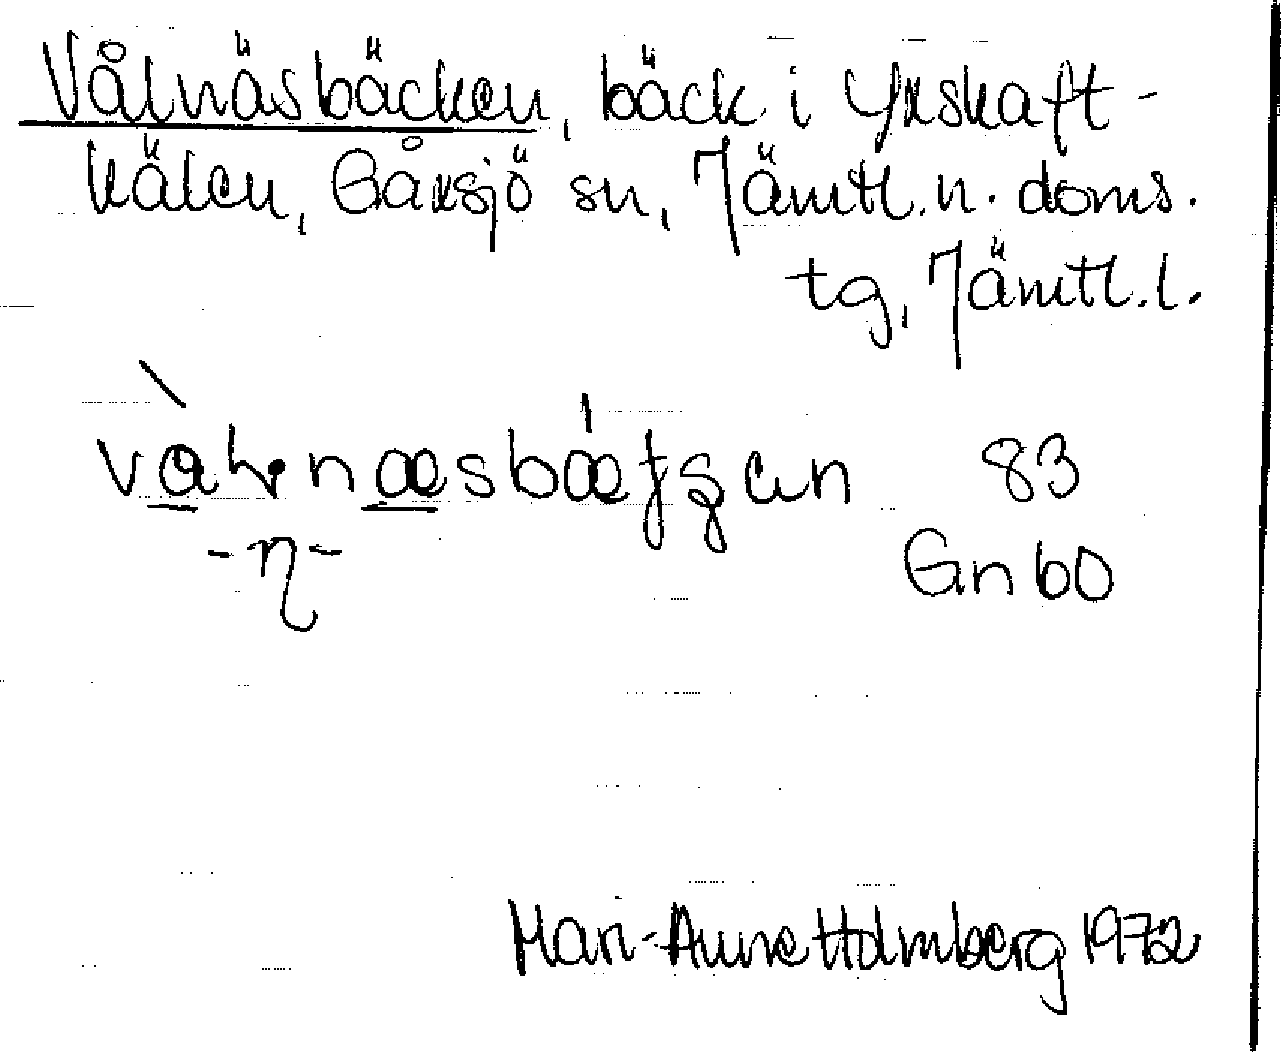 Vålnäsbäcken, bäck i Yxskaft-
kälen, Gåxsjö sn, Jämtl. n. doms.
tg, Jämtl. l.
83
-η-
Gn 60
Mari-Anne Holmberg 1972